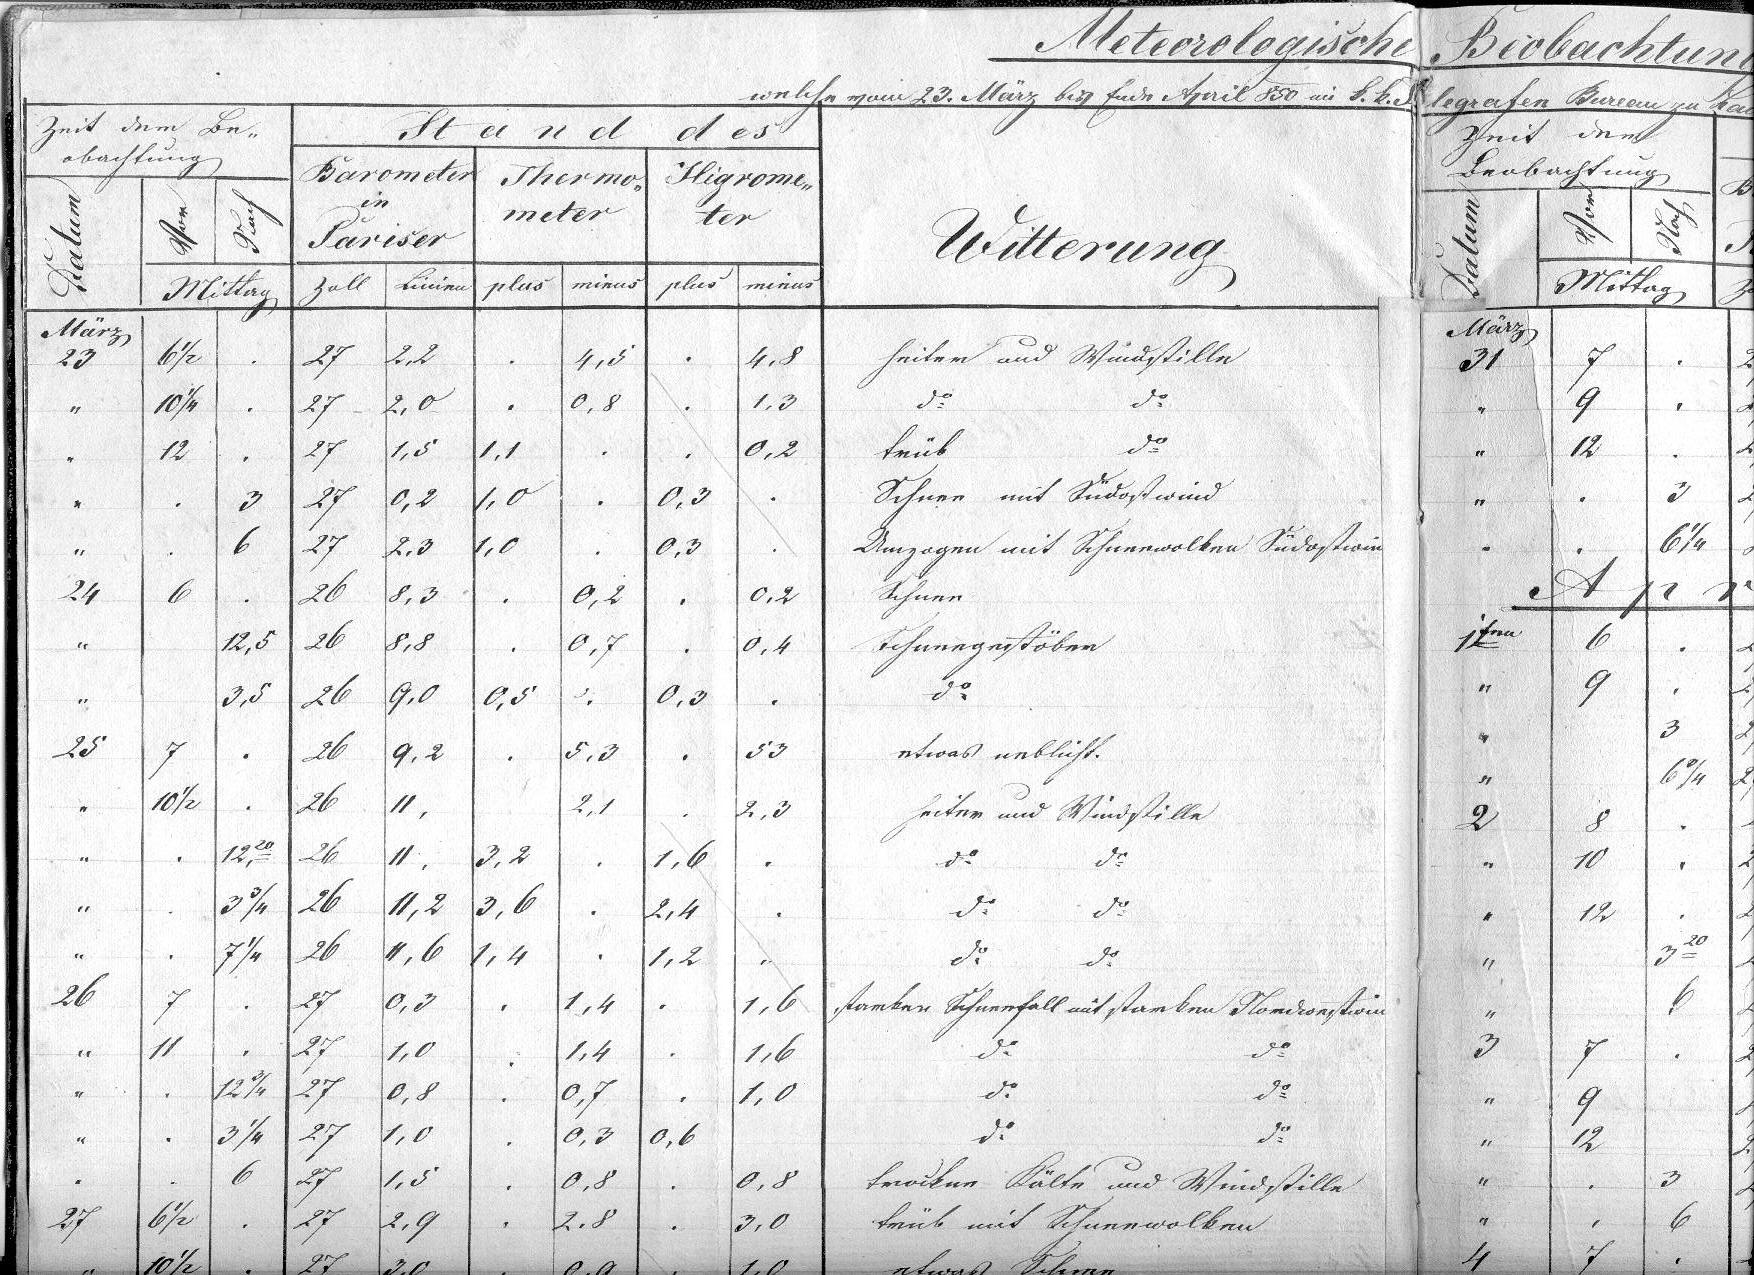 Meteorologische Beobachtung
welche vom 23. März bis Ende April 850 im k. k. Telegrafen Bureau zu
Zeit der Be„ Stand des
obachtung
Barometer Thermo„ Higrome„
in meter ter
Pariser
Datum Vor Nach Witterung
Mittag Zoll Linien plus minus plus minus
März
23 6½ . 27 2,2 . 4,5 . 4,8 heiter und Windstille
„ 10¼ . 27 2,0 . 0,8 . 1,3 do do
„ 12 . 27 1,5 1,1 . . 0,2 trüb do
„ . 3 27 0,2 1,0 . 0,3 . Schnee mit Südostwind
„ . 6 27 2,3 1,0 . 0,3 . Umzogen mit Schneewolken Südostwin
24 6 . 26 8,3 . 0,2 . 0,2 Schnee
„ 12,5 26 8,8 . 0,7 . 0,4 Schneegestöber
„ 3,5 26 9,0 0,5 . 0,3 . do
25 7 . 26 9,2 . 5,3 . 53 etwas neblicht.
„ 10½ . 26 11, 2,1 . 2,3 heiter und Windstille
„ . 12,20 26 11, 3,2 . 1,6 . do do
„ . 3¾ 26 11,2 3,6 . 2,4 . do do
„ . 7¼ 26 11,6 1,4 . 1,2 „ do do
26 7 . 27 0,3 . 1,4 . 1,6 starker Schneefall mit starken Nordwestwin
„ 11 . 27 1,0 . 1,4 . 1,6 do do
„ . 12¾ 27 0,8 . 0,7 . 1,0 do do
„ . 3¼ 27 1,0 . 0,3 0,6 do do
. . 6 27 1,5 . 0,8 . 0,8 trockene Kälte und Windstille
27 6½ . 27 2,9 . 2.8 . 3,0 trüb mit Schneewolken
„ 10½ . 27 3,0 . 0,9 . 1,0 etwas Schnee
Zeit der
Beobachtung
Datum Vor Nach
Mittag
März
31 7 .
„ 9 .
„ 12 .
„ . 3
„ . 6¼
Apr
1ten 6 .
„ 9 .
„ 3
„ 6¾
2 8 .
„ 10 .
„ 12 .
„ 3 20
„ 6
3 7 .
„ 9
„ 12
„ . 3
„ . 6
4 7 .